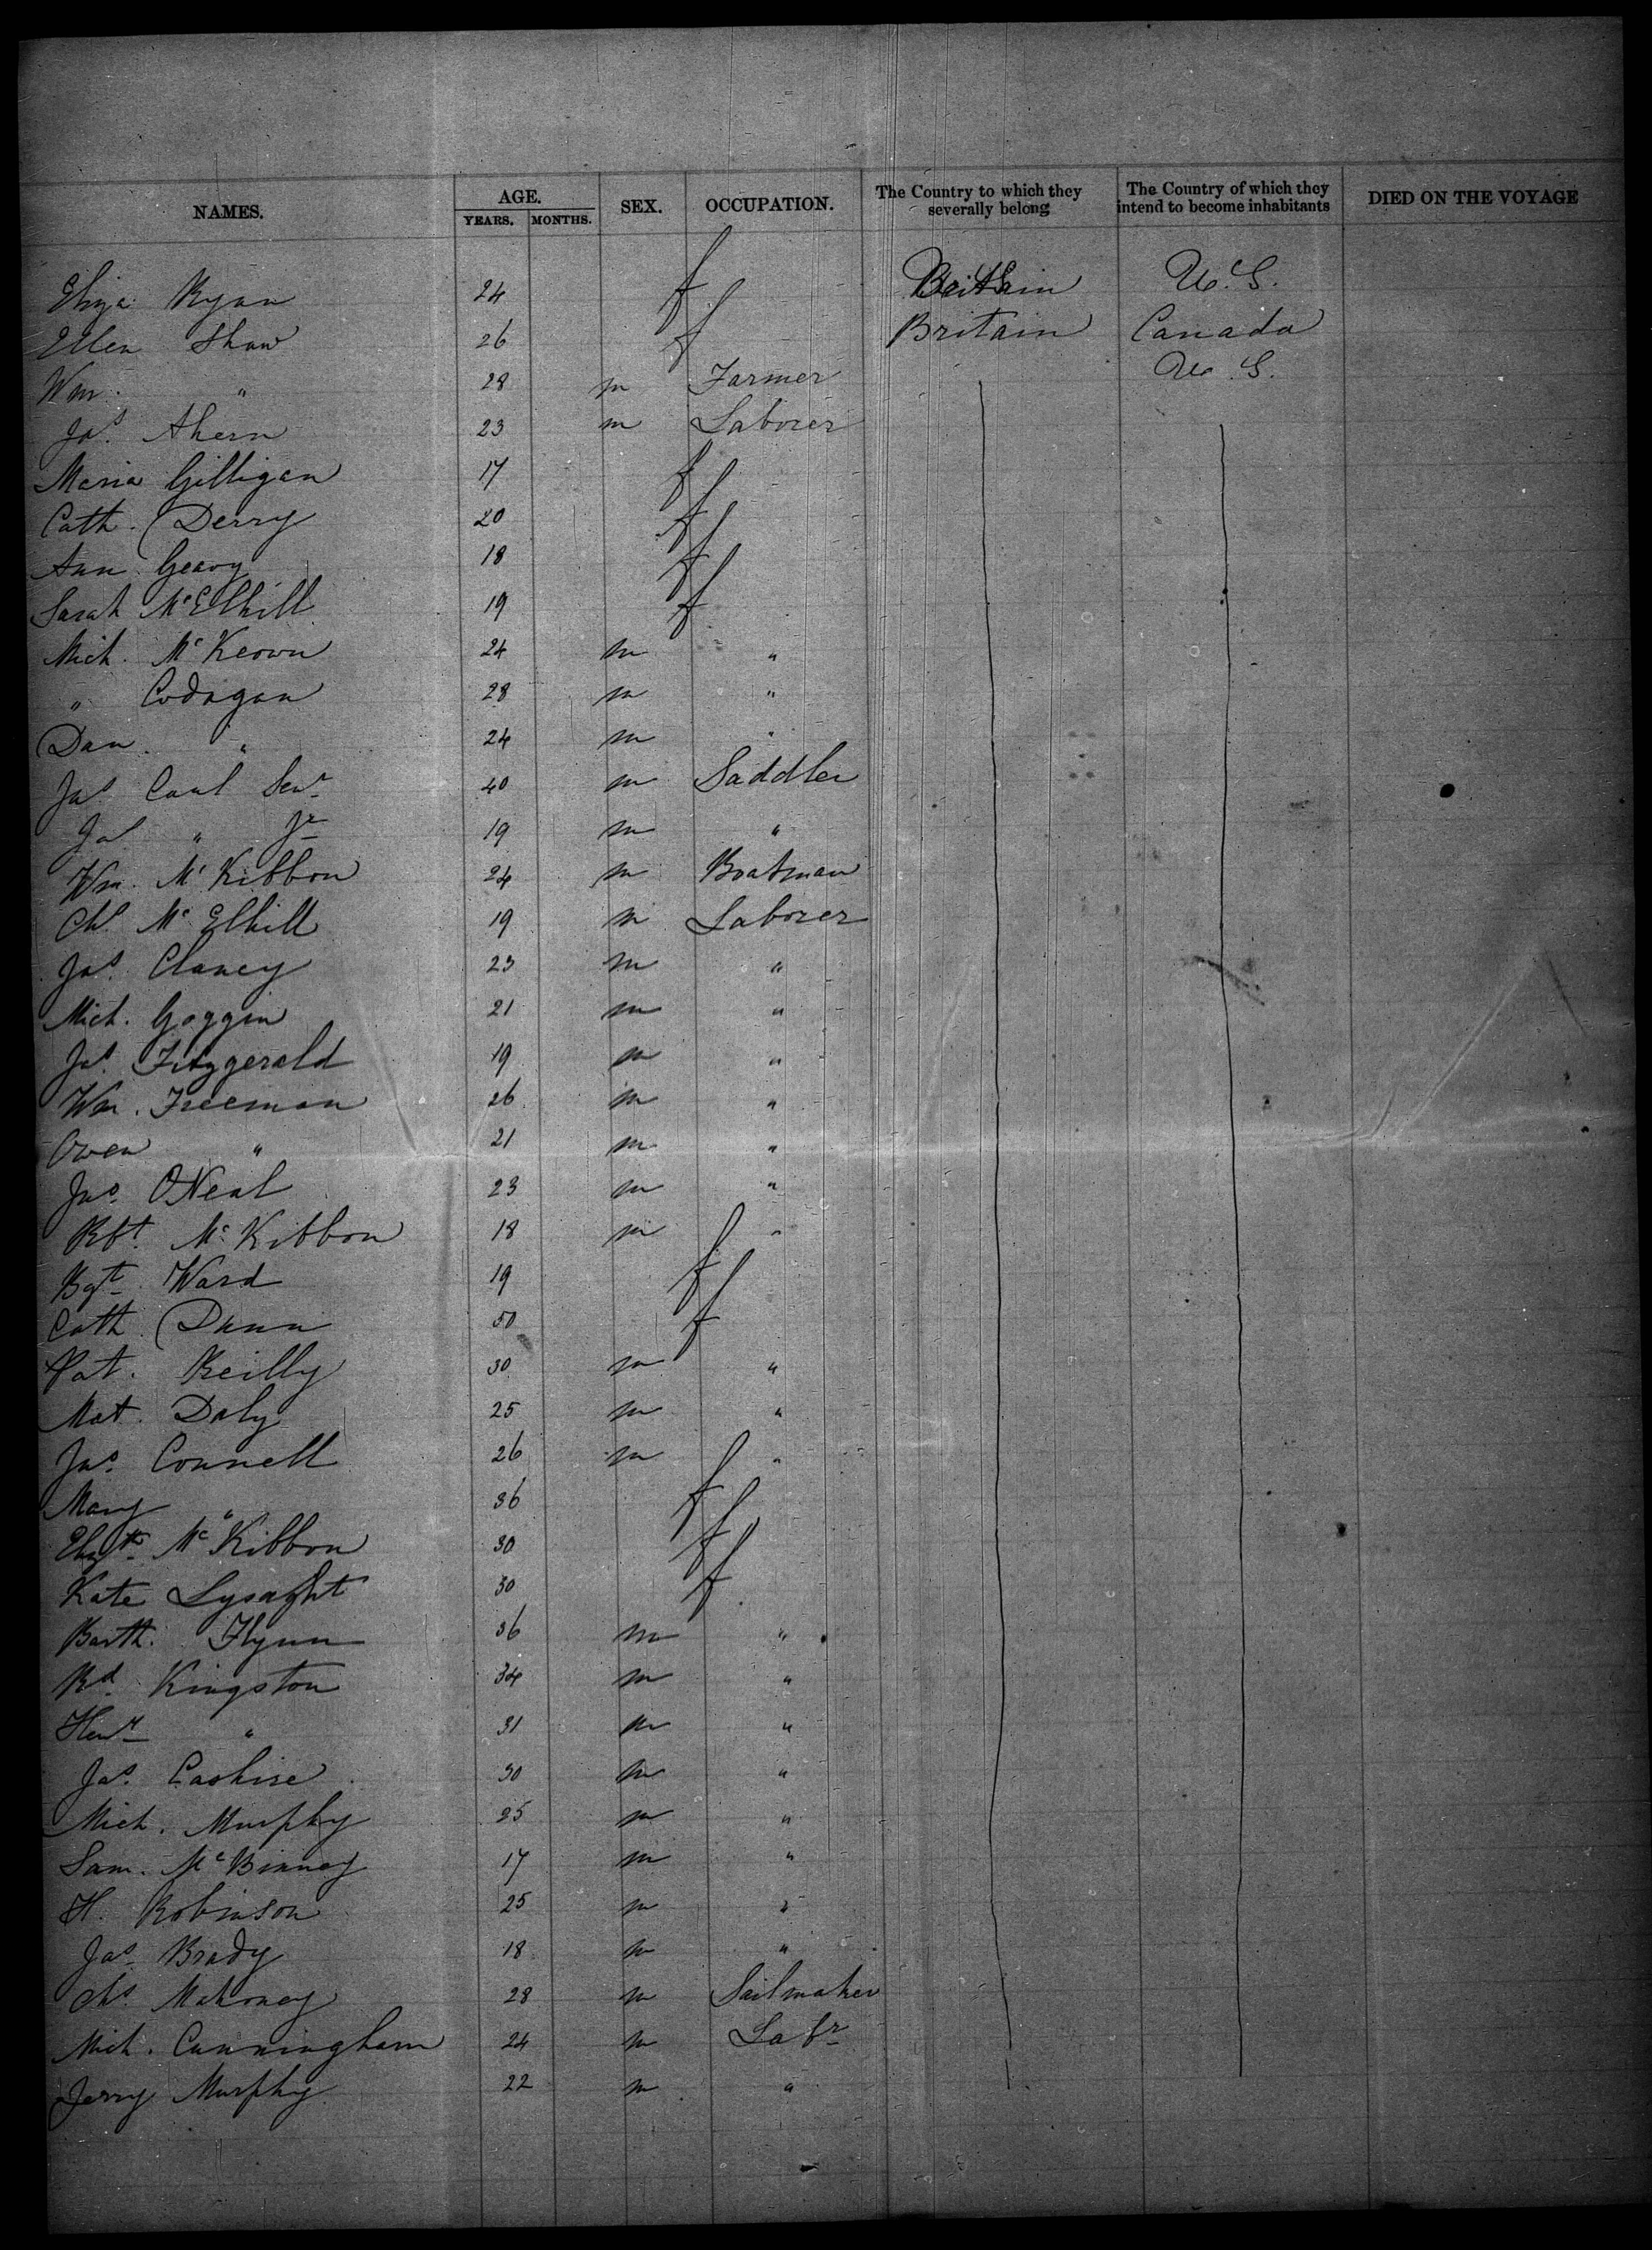 NAMES. AGE. SEX. OCCUPATION. The Country to which they severally belong The Country of which they intend to become inhabitants DIED ON THE VOYAGE
YEARS. MONTHS.
Eliza Ryan 24 f Britain U.S.
Ellen Shaw 26 f Britain Canada
Wm. " 28 m Farmer U.S.
Jas. Ahern 23 m Laborer
Maria Gilligan 17 f
Cath. Derry 20 f
Ann Geary 18 f
Sarah McElhill 19 f
Mich. McKeown 24 m "
" Codagan 28 m "
Dan. " 24 m "
Jas Caul Senr 40 m Saddler
Jas " Jr 19 m "
Wm. McKibbon 24 m Boatman
Chs McElhill 19 m Laborer
Jas. Clancy 23 m "
Mich. Goggin 21 m "
Js. Fitzgerald 19 m "
Wm. Freeman 26 m "
Owen " 21 m "
Jno. ONeal 23 m "
Rbt. McKibbon 18 m "
Bgt. Ward 19 f
Cath. Dunn 50 f
Pat. Reilly 30 m "
Mat. Daly 25 m "
Jno. Connell 26 m "
Mary " 36 f
Elizth McKibbon 30 f
Kate Lysaght 30 f
Barth. Flynn 36 m "
Rd. Kingston 34 m "
Henr " 31 m "
Jas. 30 m "
Mich. Murphy 25 m "
Sam. McBinney 17 m "
H. Robinson 25 m "
Jas. Brady 18 m "
Chs. Mahoney 28 m Sailmaker
Mich. Cunningham 24 m Labr
Jerry Murphy 22 m "